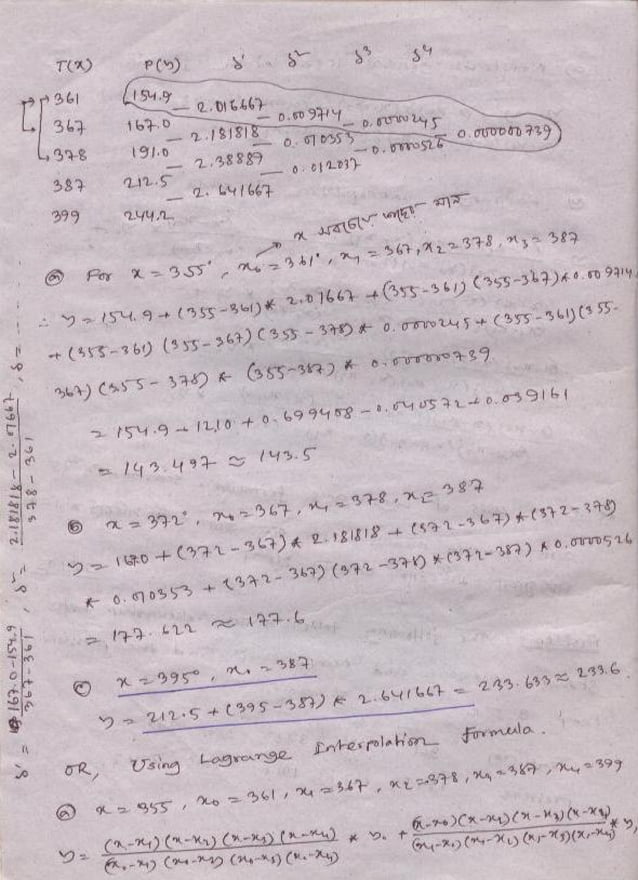 T(x) P(y) δ' δ² δ³ δ⁴
361 154.9
2.016667
367 167.0 0.009714
2.181818 0.0000245
378 191.0 0.010353 0.000000739
2.38889 0.0000526
387 212.5 0.012037
2.641667
399 244.2
x
ⓐ For x = 355°, x₀ = 361°, x₁ = 367, x₂ = 378, x₃ = 387
∴ y = 154.9 + (355-361) * 2.01667 + (355-361) (355-367) * 0.009714
+ (355-361) (355-367) (355-378) * 0.0000245 + (355-361) (355-
367) (355-378) * (355-387) * 0.000000739
= 154.9 - 12.10 + 0.699408 - 0.040572 + 0.039161
= 143.497 ≈ 143.5
ⓑ x = 372°, x₀ = 367, x₁ = 378, x₂ = 387
y = 167.0 + (372-367) * 2.181818 + (372-367) * (372-378)
* 0.010353 + (372-367) (372-378) * (372-387) * 0.0000526
= 177.622 ≈ 177.6
ⓒ x = 395°, x₀ = 387
y = 212.5 + (395-387) * 2.641667 = 233.633 ≈ 233.6
OR, Using Lagrange Interpolation formula.
ⓐ x = 355, x₀ = 361, x₁ = 367, x₂ = 378, x₃ = 387, x₄ = 399
y = (x-x₁) (x-x₂) (x-x₃) (x-x₄) / (x₀-x₁) (x₀-x₂) (x₀-x₃) (x₀-x₄) * y₀ + (x-x₀) (x-x₂) (x-x₃) (x-x₄) / (x₁-x₀) (x₁-x₂) (x₁-x₃) (x₁-x₄) * y₁
δ' = 167.0-154.9 / 367-361, δ² = 2.181818-2.01667 / 378-361, δ = ----